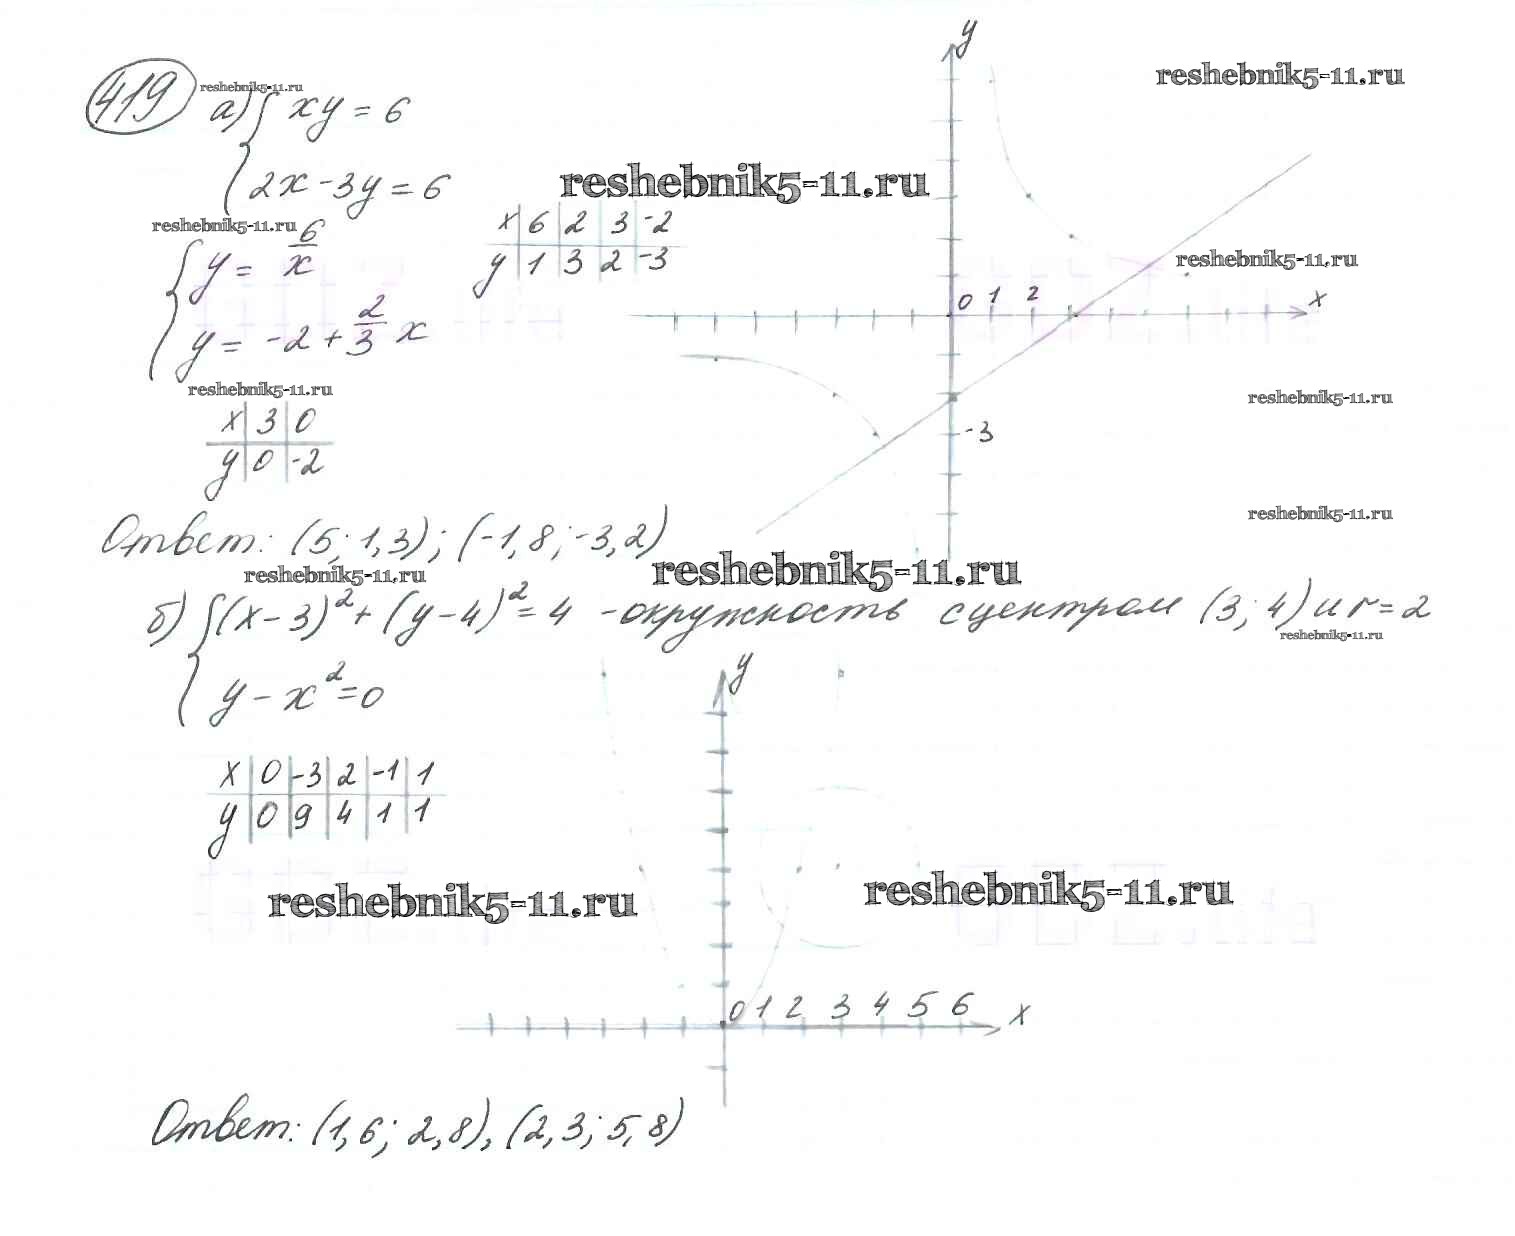 419 а) { xy = 6
reshebnik5-11.ru
reshebnik5-11.ru
2x - 3y = 6
reshebnik5-11.ru
reshebnik5-11.ru
y = 6/x
x 6 2 3 -2
y 1 3 2 -3
y = -2 + 2/3 x
reshebnik5-11.ru
x 3 0
y 0 -2
y
reshebnik5-11.ru
0 1 2 x
reshebnik5-11.ru
-3
reshebnik5-11.ru
Ответ: (5; 1,3); (-1,8; -3,2)
reshebnik5-11.ru
reshebnik5-11.ru
б) { (x-3)² + (y-4)² = 4 - окружность с центром (3; 4) и r = 2
reshebnik5-11.ru
y - x² = 0
x 0 -3 2 -1 1
y 0 9 4 1 1
y
reshebnik5-11.ru
reshebnik5-11.ru
0 1 2 3 4 5 6 x
Ответ: (1,6; 2,8), (2,3; 5,8)